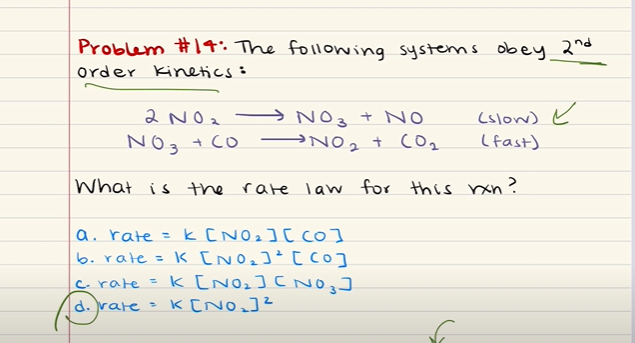 Problem #14: The following systems obey 2nd
order kinetics:
2 NO₂ → NO₃ + NO (slow)
NO₃ + CO → NO₂ + CO₂ (fast)
What is the rate law for this rxn?
a. rate = K [NO₂][CO]
b. rate = K [NO₂]² [CO]
c. rate = K [NO₂][NO₃]
d. rate = K [NO₂]²